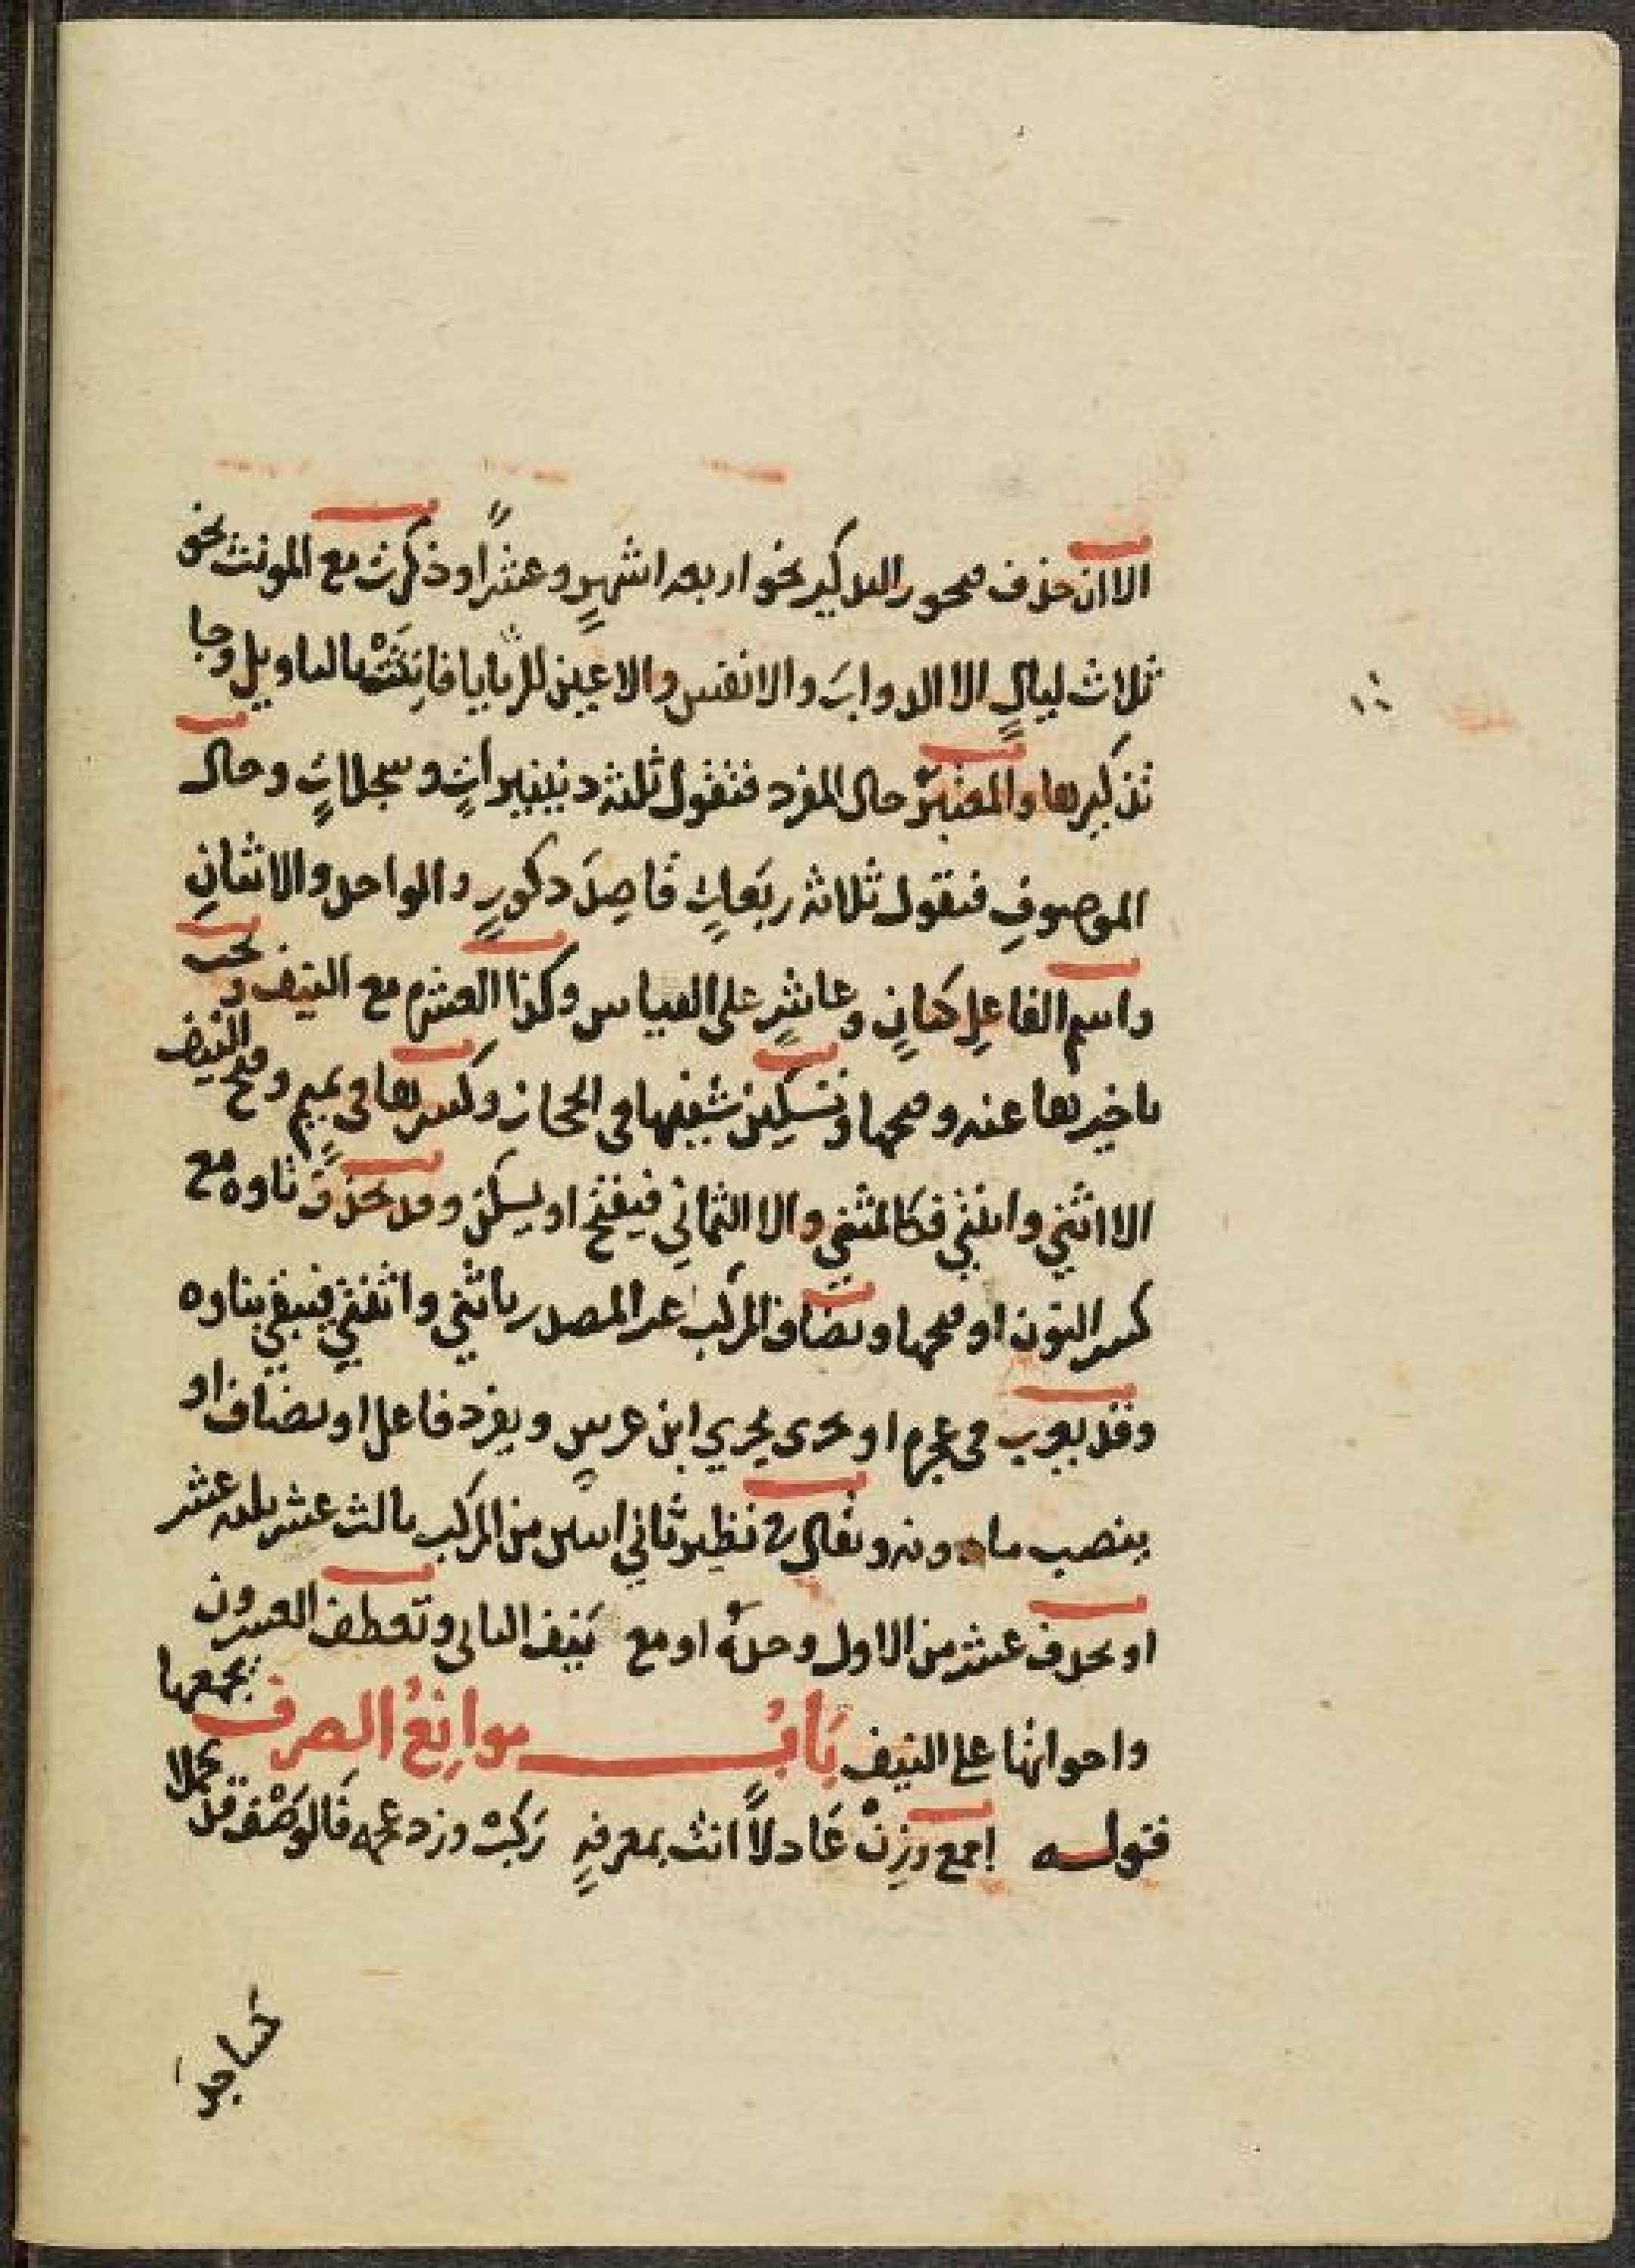 الا ان حذف فيجوز التذكير نحو اربعة اشهرٍ وعشرًا وذكرت مع المونث نحو
ثلاث ليالٍ الا الدوابَ والانفس والاعين للربايا فانِثَتْ بالتاويل وجا
تذكيرها والمعتبر حال المفرد فتقول ثلثة دنينيراتٍ وسجلاتٍ وحال
الموصوفِ فتقول ثلاثة ربَعاتٍ قاصِدَ ذكورٍ والواحد والاثنانِ
واسم الفاعلِ كثانٍ وعاشرٍ على القياس وكذا العشرة مع النيف ويجب
تاخيرها عنه وفتحها وتسكين شينها في الحجاز وكسرها في تميمٍ وفتح النيف
الا اثني واثنتي فكالمثنى والا الثماني فيفتح او يسكن وقد تحذف تاوه مع
كسر النون او فتحها وتضاف المركب غير المصدر باثني واثنتي فيبقى بناوه
وقد يعرب في عجزه او يجرى مجرى ابن عرسٍ ويفرد فاعل او يضاف او
ينصب ما دونه ويقال في نظير ثاني اثنين من المركب ثالث عشر ثلثة عشر
او بحذف عشر من الاول وحدهُ او مع نيف الثاني وتعطف العشرون
واخواتها على النيف بَابُ موانعُ الصرف يجمعها
قوله اجمع وزِنْ عَادلاً انث بمعرفةٍ رَكبْ وزد عجمة فالوَصْف قد كملا